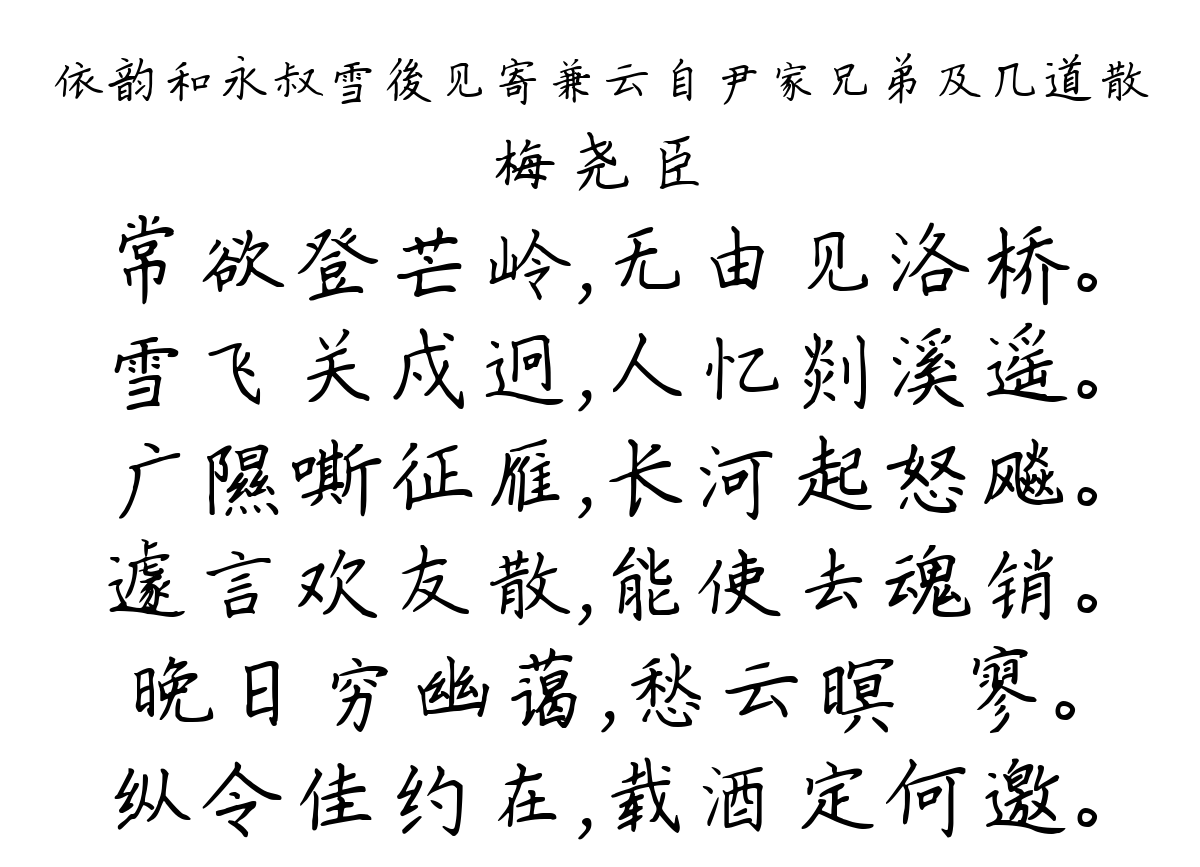 依韵和永叔雪後见寄兼云自尹家兄弟及几道散
梅尧臣
常欲登芒岭,无由见洛桥。
雪飞关戍迥,人忆剡溪遥。
广隰嘶征雁,长河起怒飚。
遽言欢友散,能使去魂销。
晚日穷幽蔼,愁云暝 寥。
纵令佳约在,载酒定何邀。